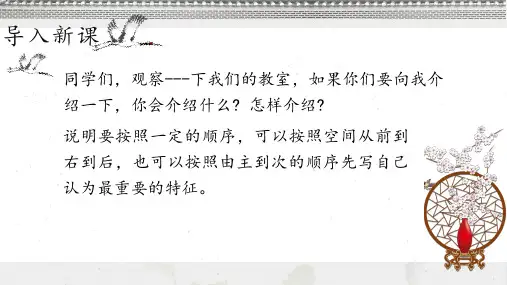 导入新课
同学们，观察---下我们的教室，如果你们要向我介
绍一下，你会介绍什么？怎样介绍？
说明要按照一定的顺序，可以按照空间从前到
右到后，也可以按照由主到次的顺序先写自己
认为最重要的特征。